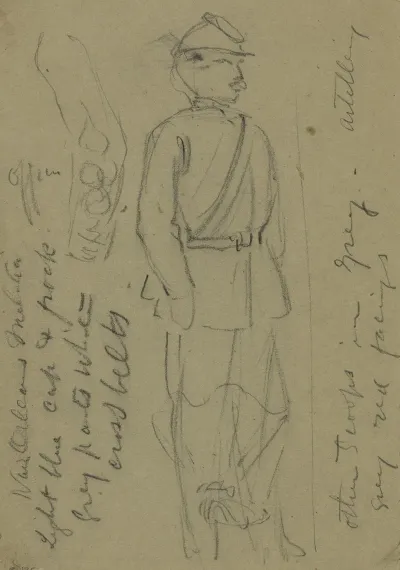 New Orleans Militia
light blue cap & frock.
Grey pants white
cross belts
other troops in Grey. - Artillery
Grey red facings